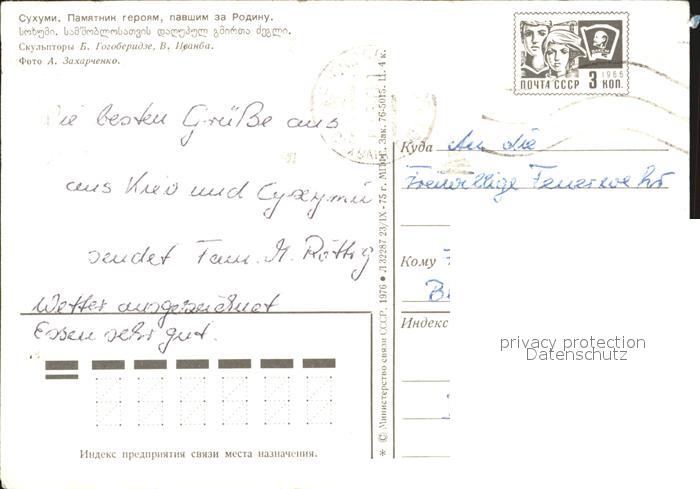 Сухуми. Памятник героям, павшим за Родину.
სოხუმი. სამშობლოსათვის დაღუპულ გმირთა ძეგლი.
Скульпторы Б. Гогоберидзе, В. Иванба.
Фото А. Захарченко.
ПОЧТА СССР 3 КОП.
1966
Die besten Grüße aus
aus Kiev und Сухуми
sendet Fam. M. Röttig
Wetter ausgezeichnet
Essen sehr gut.
Индекс предприятия связи места назначения.
* © Министерство связи СССР, 1976 ● Л 32287 23/IX-75 г. МПФГ. Зак. 76-5015. Ц. 4 к.
Куда An die
Freiwillige Feuerwehr
Кому
Индекс
privacy protection
Datenschutz